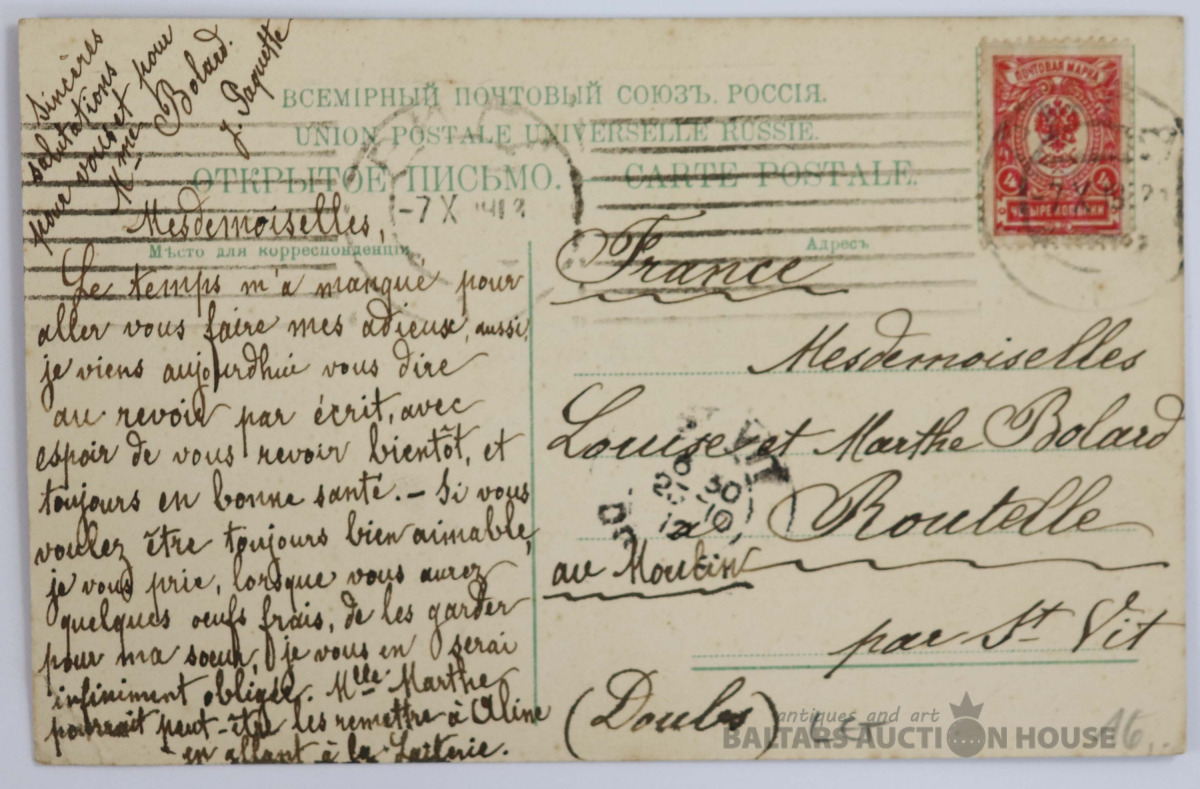 Sincères
salutations
pour vous et pour
Mme Bolard.
J. Paquette
ВСЕМІРНЫЙ ПОЧТОВЫЙ СОЮЗЪ. РОССІЯ.
UNION POSTALE UNIVERSELLE RUSSIE.
ОТКРЫТОЕ ПИСЬМО. — CARTE POSTALE.
Мѣсто для корреспонденціи
Адресъ
ПОЧТОВАЯ МАРКА
4 4
ЧЕТЫРЕ КОПѢЙКИ
-7 X 1912
Mesdemoiselles,
Le temps m'a manqué pour
aller vous faire mes adieux, aussi,
je viens aujourdhui vous dire
au revoir par écrit, avec
espoir de vous revoir bientôt, et
toujours en bonne santé. — Si vous
voulez être toujours bien aimable,
je vous prie, lorsque vous aurez
quelques oeufs frais, de les garder
pour ma soeur, je vous en serai
infiniment obligée. Mlle Marthe
pourrait peut-être les remettre à Aline
en allant à la Laiterie.
France
Mesdemoiselles
Louise et Marthe Bolard
à Routelle
au Moulin
par St Vit
(Doubs)
VIT
30
10
12
LET
16.
antiques and art
BALTARS AUCTION HOUSE